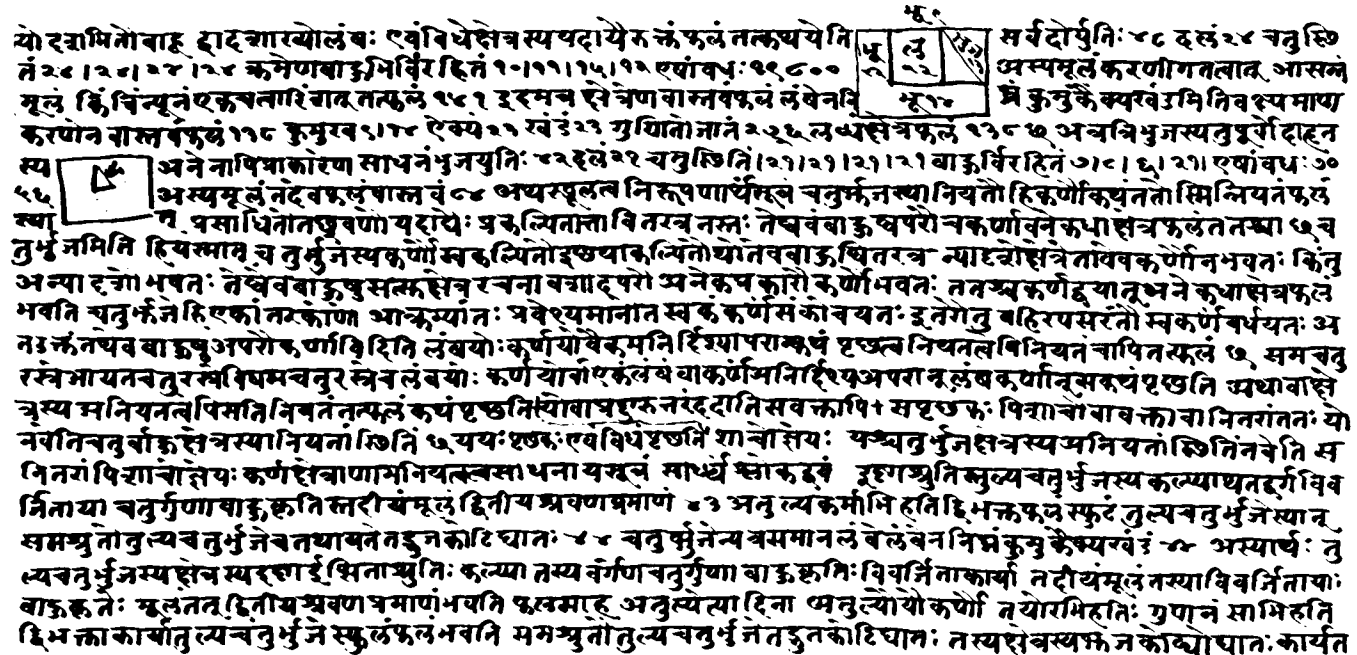 यो दशमितो बाहू द्वादशारव्योलंबः एवंविधेक्षेत्रस्ययदाद्यैरुक्तंफलंतत्कथयेति सर्वदोर्युतिः ४८ दलं २४ चतुस्थि
तं २४।२४।२४।२४ क्रमेणबाहुभिर्विरहितं १०।११।१५।१२ एषांवधः १९८०० अस्यमूलंकरणीगतत्वात् आसन्न
मूलं किंचिन्न्यूनंएकचत्वारिंशत् तत्फलं १४१ इदमचक्षेत्रेणवास्तवफलंलंबेननि घ्नंकुमुखैक्यखंडमितिवक्ष्यमाण
करणेनवास्तवफलं १३८ कुमुख ९।१४ ऐक्यं २३ खंडं २३ गुणितोजातं २७६ लब्धंक्षेत्रफलं १३८ ७ अत्रत्रिभुजस्यतुपूर्वोदाहृत
स्य अनेनापिप्रकारेणसाधनंभुजयुतिः ४२ दलं २१ चतुस्थितं।२१।२१।२१।२१ बाहुर्विरहितं ७।८।६।२१।एषांवधः ७०
५६ अस्यमूलंतदेवफलंवास्तवं ८४ अथस्थूलत्वनिरूपणार्थंसूत्रं चतुर्भुजस्यानियतौहिकर्णौकथंततोस्मिन्नियतंफलं
स्यात् प्रसाधितौतच्छ्रवणौयदाद्यैः प्रकल्पितौतावितरत्रनस्तः तेष्वेवबाहुष्वपरौचकर्णावनेकधाक्षेत्रफलंततश्च ७ च
तुर्भुजमिति हियस्मात् चतुर्भुजस्यकर्णौ
अन्यादृशौभवतः तेष्वेवबाहुषुसत्सुक्षेत्ररचनावशात्परौअनेकप्रकारौकर्णौभवतः ततश्चकर्णद्वयात् अनेकधाक्षेत्रफलं
भवति चतुर्भुजेहिएकांतरकोणा आक्रम्यांतः प्रवेश्यमानौतस्वकंकर्णसंकोचयतः इतरौतुबहिरपसरंतौस्वकर्णंवर्धयतः अ
तउक्तंतेष्वेवबाहुषुअपरौकर्णाविति लंबयोःकर्णयोर्वैकमनिर्दिश्यापरान्कथं पृच्छत्यनियतत्वेपिनियतंचापितत्फलं ७ समचतु
रस्रेआयतचतुरस्रेविषमचतुरस्रेचलंबयोः कर्णयोर्वाएकंलंबंवाकर्णंअनिर्दिश्यअपरान्लंबकर्णान्सकथंपृच्छति अथवाक्षे
त्रस्यअनियतत्वेपिसतिनियतंतत्फलंकथंपृच्छति सपृच्छकः पिशाचोवावक्तावानितरांततः यो
नवेत्तिचतुर्बाहुक्षेत्रस्यानियतांस्थितिं ७ ययःपृच्छकःएवंविधंपृच्छतिपिशाचोज्ञेयः यश्चतुर्भुजक्षेत्रस्यअनियतांस्थितिंनवेत्तिस
नितरांपिशाचोज्ञेयः कर्णक्षेत्राणामनियतत्वसाधनायसूत्रं सार्धश्लोकद्वयं इष्टाश्रुतिस्तुल्यचतुर्भुजस्यकल्प्याथतद्वर्गविव
र्जितायाचतुर्गुणाबाहुकृतिस्तदीयंमूलंद्वितीयश्रवणप्रमाणं ४३ अतुल्यकर्णाभिहतिर्द्विभक्ताफलंस्फुटंतुल्यचतुर्भुजेस्यात्
समश्रुतौतुल्यचतुर्भुजेचतथायतेतद्भुजकोटिघातः ४४ चतुर्भुजेन्यत्रसमानलंबेलंबेननिघ्नंकुमुखैक्यखंडं ४४ अस्यार्थः तु
ल्यचतुर्भुजस्यक्षेत्रस्य श्रुतिः कल्प्या तस्यवर्गेणचतुर्गुणाबाहुकृतिःविवर्जिताकार्या तदीयंमूलंतस्याविवर्जितायाः
बाहुकृतेः मूलंतत्द्वितीयश्रवणप्रमाणंभवति फलमाह अतुल्येत्यादिना अतुल्यौयौकर्णौ तयोरभिहतिः गुणनंसाभिहति
द्विभक्ताकार्यातुल्यचतुर्भुजेस्फुटंफलंभवति समश्रुतौतुल्यचतुर्भुजेतद्भुजकोटिघातः तस्यक्षेत्रस्यभुजकोट्योर्घातःकार्यत